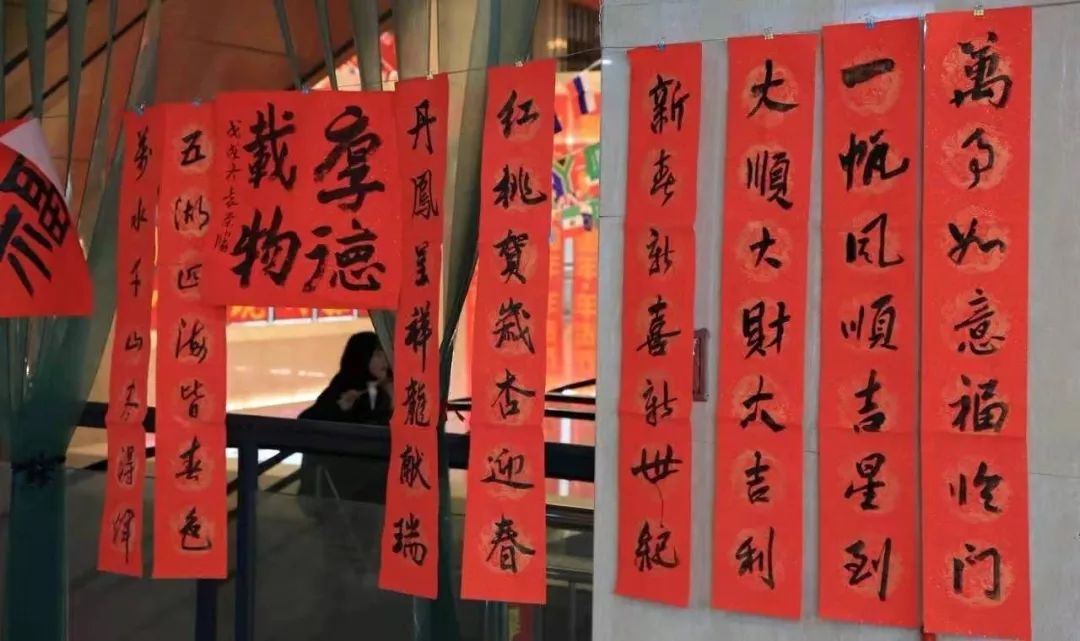 萬事如意福临门
一帆风順吉星到
大順大財大吉利
新春新喜新世紀
红桃賀歲杏迎春
丹鳳呈祥龍献瑞
厚德
載物
五湖四海皆春色
萬水千山尽得辉
福